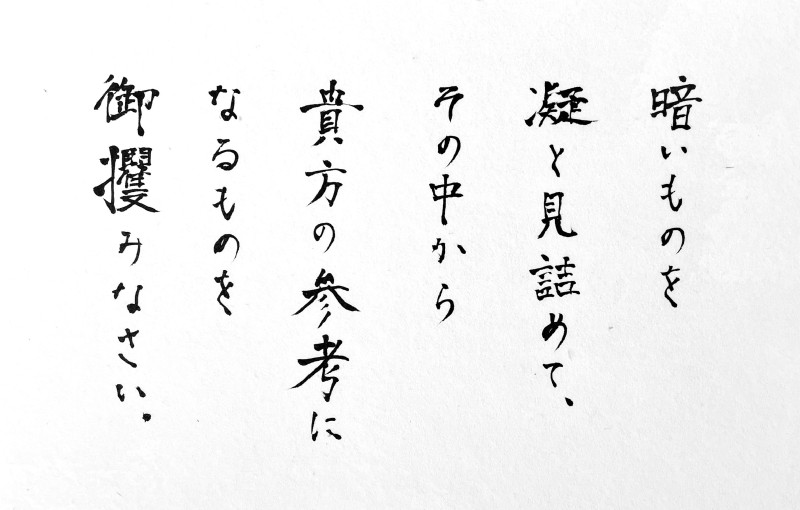 暗いものを
凝と見詰めて、
その中から
貴方の参考に
なるものを
御攫みなさい。